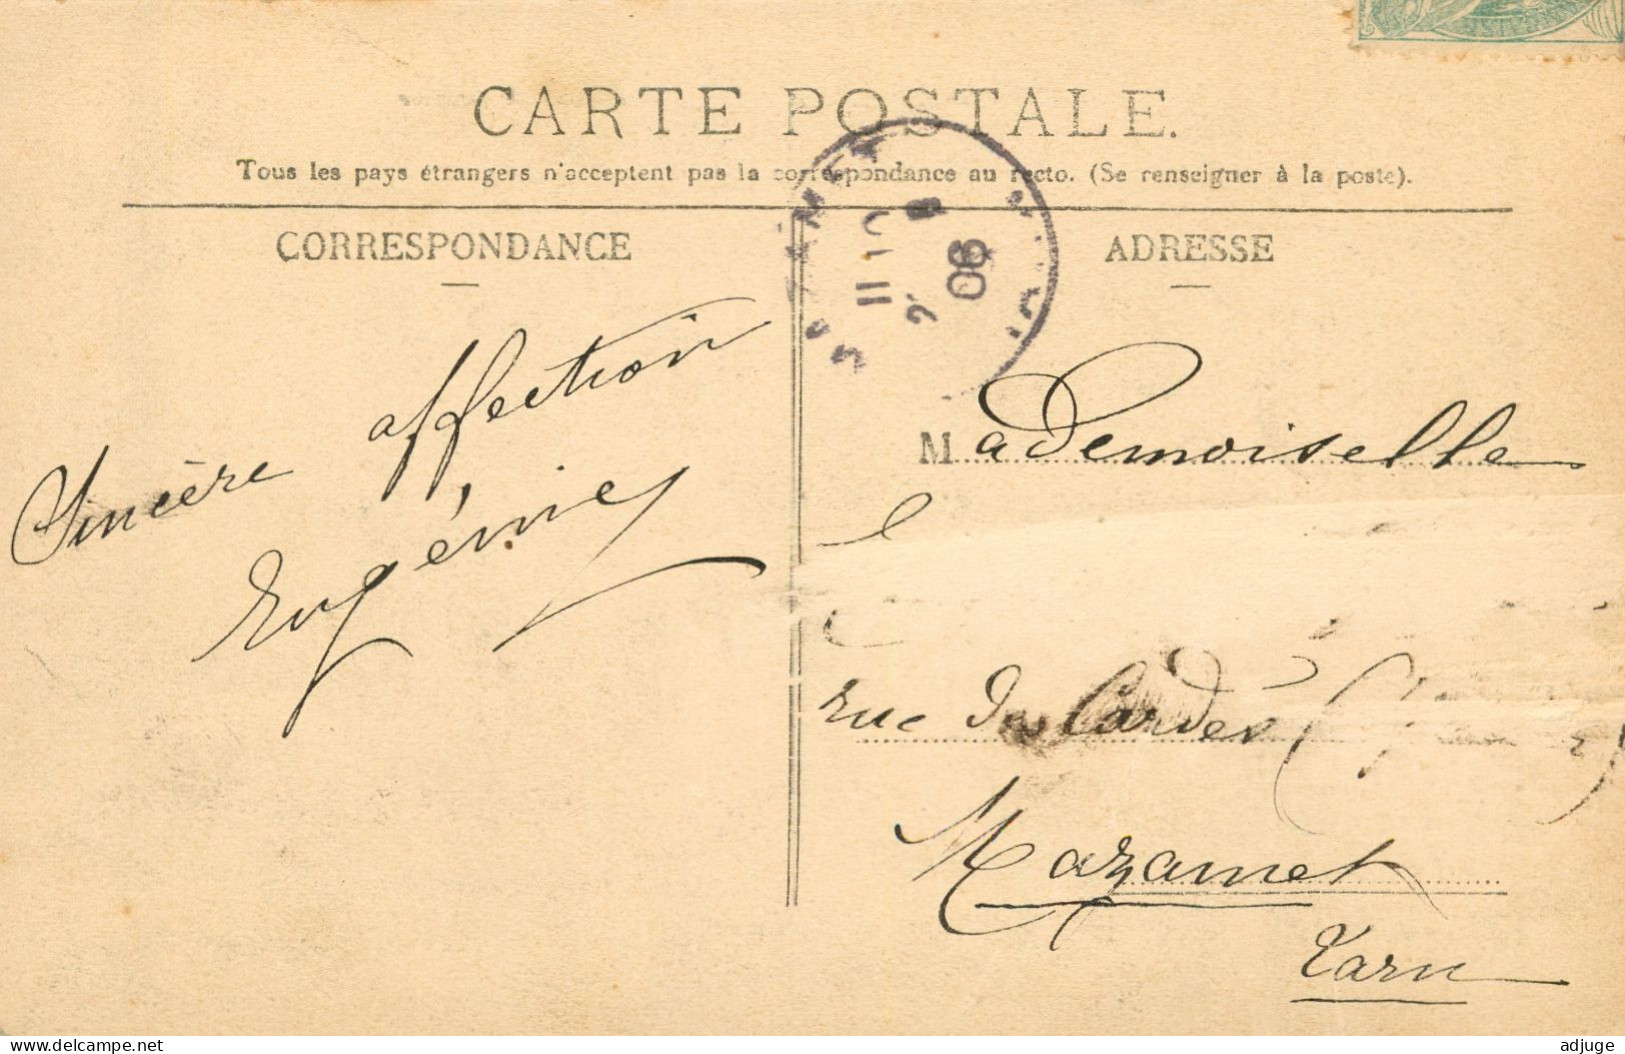 CARTE POSTALE.
Tous les pays étrangers n'acceptent pas la correspondance au recto. (Se renseigner à la poste).
CORRESPONDANCE
ADRESSE
11 10
2
06
Sincère affection
Eugénie
Mademoiselle
rue des Cardes
Mazamet
Tarn
https://www.delcampe.net
adjuge